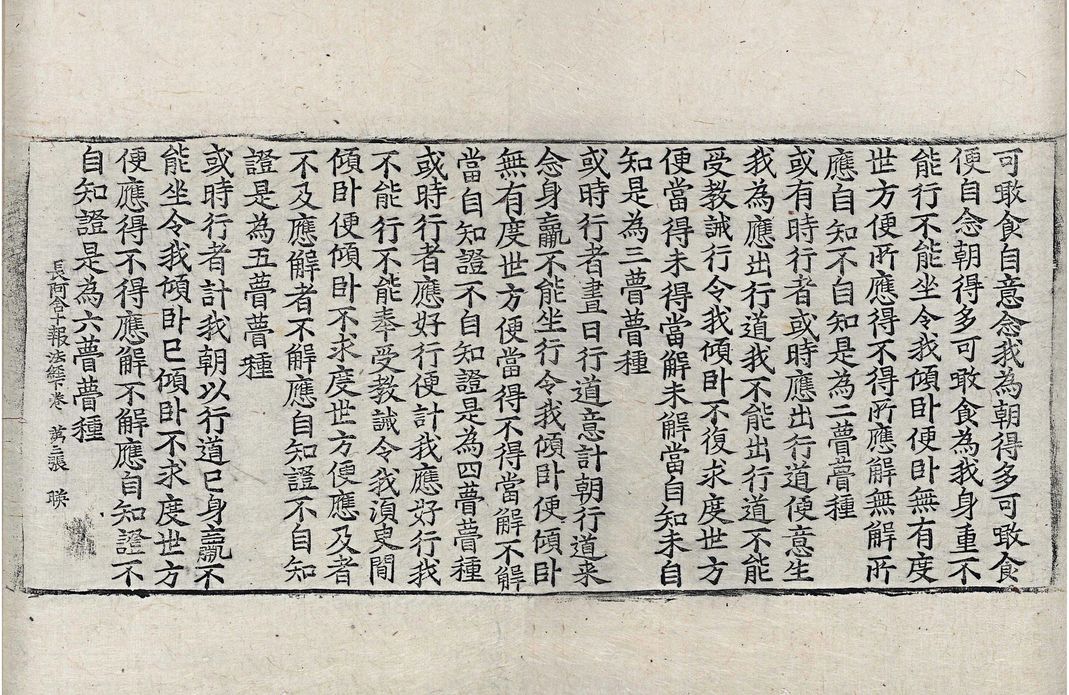 可噉食自意念我為朝得多可噉食
便自念朝得多可噉食為我身重不
能行不能坐令我傾卧便卧無有度
世方便所應得不得所應解無解所
應自知不自知是為二瞢瞢種
或有時行者或時應出行道便意生
我為應出行道我不能出行道不能
受教誡行令我傾卧不復求度世方
便當得未得當解未解當自知未自
知是為三瞢瞢種
或時行者晝日行道意計朝行道来
念身羸不能坐行令我傾卧便傾卧
無有度世方便當得不得當解不解
當自知證不自知證是為四瞢瞢種
或時行者應好行便計我應好行我
不能行不能奉受教誡令我湏臾閒
傾卧便傾卧不求度世方便應及者
不及應解者不解應自知證不自知
證是為五瞢瞢種
或時行者計我朝以行道已身羸不
能坐令我傾卧已傾卧不求度世方
便應得不得應解不解應自知證不
自知證是為六瞢瞢種
長阿含十報法經下卷 苐三張 暎